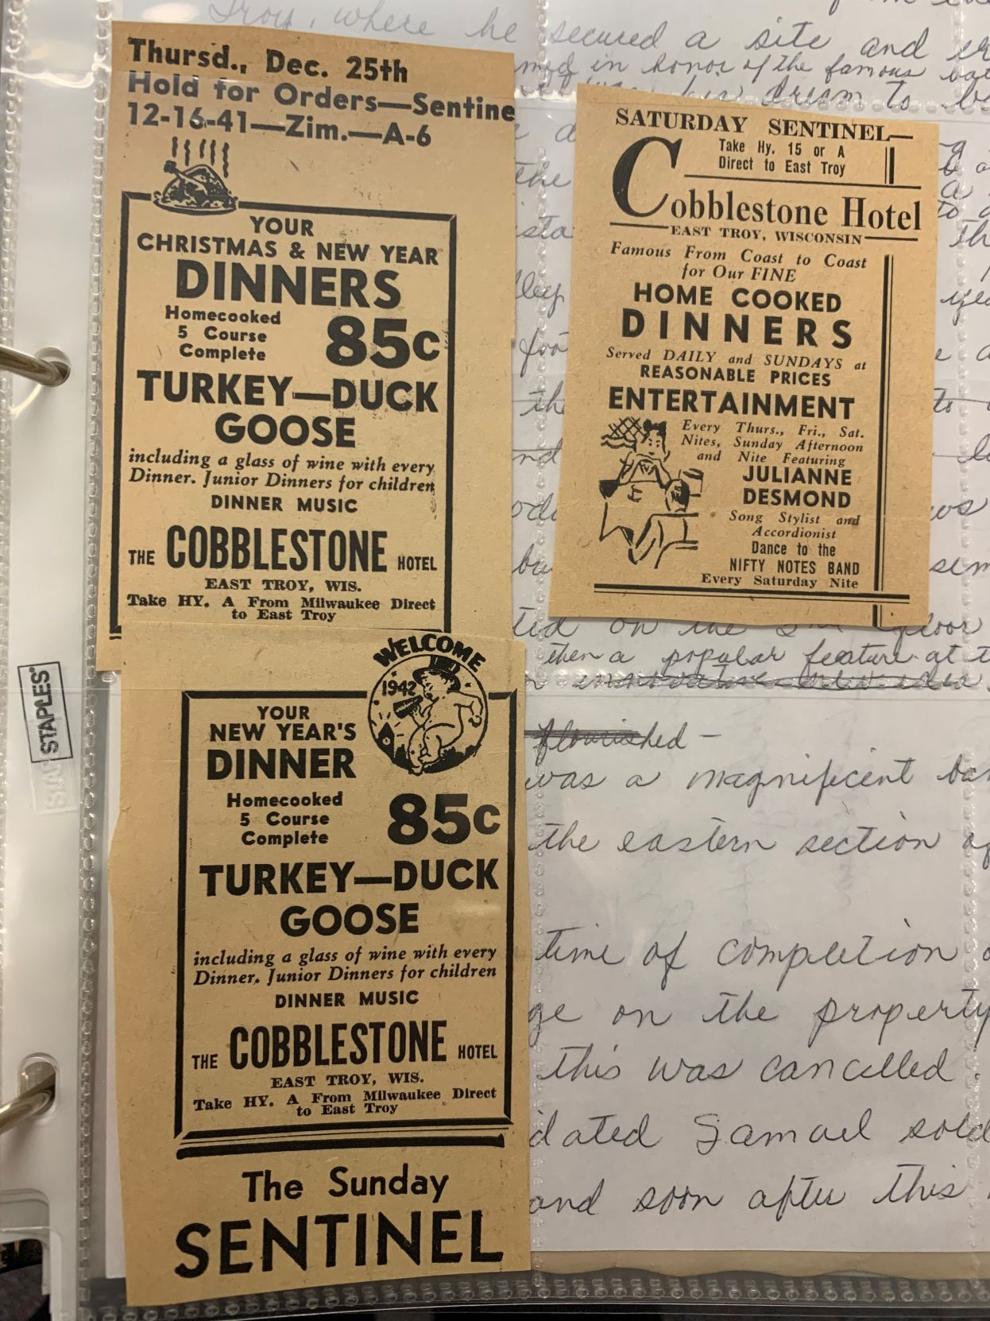 Thursd., Dec. 25th
Hold for Orders—Sentine
12-16-41—Zim.—A-6
YOUR
CHRISTMAS & NEW YEAR
DINNERS
Homecooked
5 Course
Complete
85c
TURKEY—DUCK
GOOSE
including a glass of wine with every
Dinner. Junior Dinners for children
DINNER MUSIC
THE COBBLESTONE HOTEL
EAST TROY, WIS.
Take HY. A From Milwaukee Direct
to East Troy
WELCOME
1942
YOUR
NEW YEAR'S
DINNER
Homecooked
5 Course
Complete
85c
TURKEY—DUCK
GOOSE
including a glass of wine with every
Dinner. Junior Dinners for children
DINNER MUSIC
THE COBBLESTONE HOTEL
EAST TROY, WIS.
Take HY. A From Milwaukee Direct
to East Troy
The Sunday
SENTINEL
SATURDAY SENTINEL—
Take Hy. 15 or A
Direct to East Troy
Cobblestone Hotel
EAST TROY, WISCONSIN
Famous From Coast to Coast
for Our FINE
HOME COOKED
DINNERS
Served DAILY and SUNDAYS at
REASONABLE PRICES
ENTERTAINMENT
Every Thurs., Fri., Sat.
Nites, Sunday Afternoon
and Nite Featuring
JULIANNE
DESMOND
Song Stylist and
Accordionist
Dance to the
NIFTY NOTES BAND
Every Saturday Nite
Troy, where he secured a site and
in honor of the famous
his dream to
on the floor
then a popular feature at
flourished -
was a magnificent
the eastern section
time of completion
on the property
this was cancelled.
dated Samuel sold
and soon after this
STAPLES